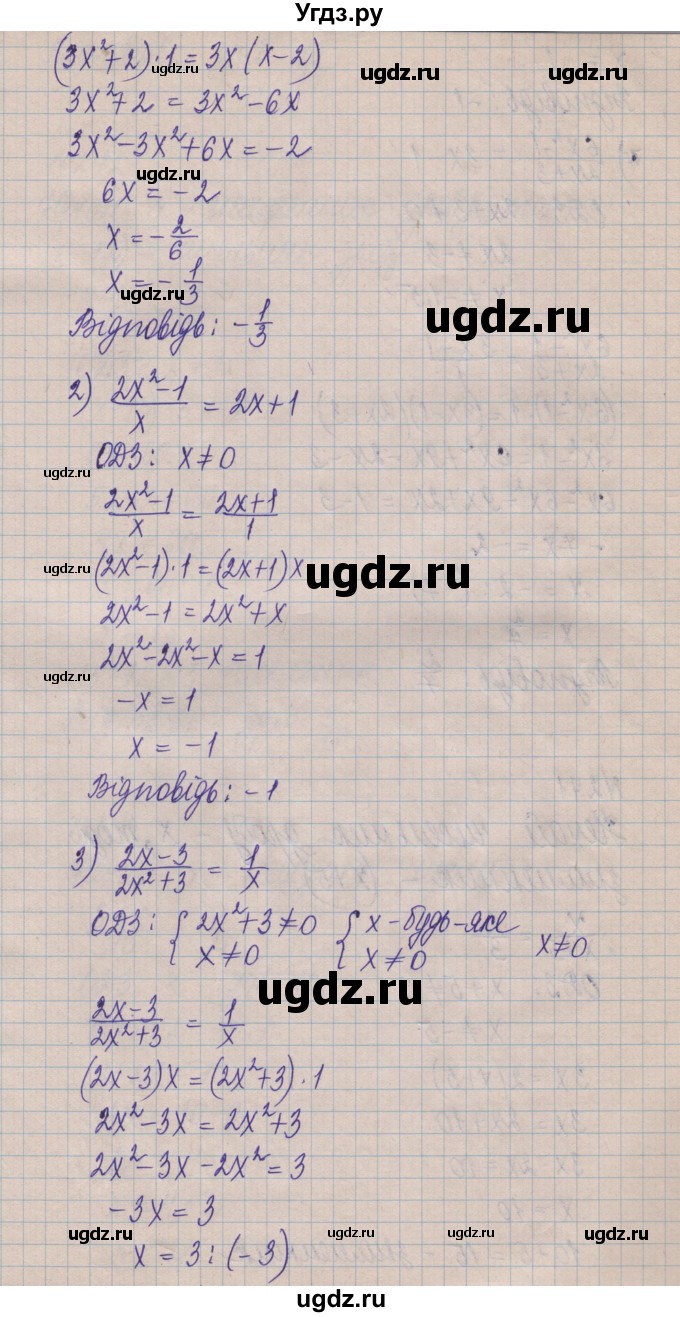 Угдз.ру
(3x²+2)·1=3x(x-2)
ugdz.ru ugdz.ru ugdz.ru
3x²+2=3x²-6x
3x²-3x²+6x=-2
ugdz.ru
6x=-2
x=-2/6
x=-1/3
ugdz.ru
ugdz.ru
Відповідь: -1/3
2) (2x²-1)/x = 2x+1
ОДЗ: x≠0
ugdz.ru
(2x²-1)/x = (2x+1)/1
ugdz.ru
(2x²-1)·1=(2x+1)x
ugdz.ru
2x²-1=2x²+x
2x²-2x²-x=1
ugdz.ru
-x=1
x=-1
Відповідь: -1
3) (2x-3)/(2x²+3) = 1/x
ОДЗ: { 2x²+3≠0 { x-будь-яке
x≠0 x≠0 x≠0
ugdz.ru
(2x-3)/(2x²+3) = 1/x
(2x-3)x=(2x²+3)·1
2x²-3x=2x²+3
2x²-3x-2x²=3
-3x=3
ugdz.ru ugdz.ru ugdz.ru ugdz.ru
x=3:(-3)
ugdz.ru